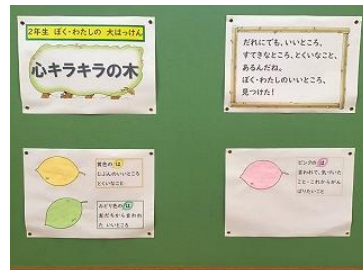 2年生 ぼく・わたしの 大はっけん
心キラキラの木
だれにでも、いいところ、
すてきなところ、とくいなこと、
あるんだね。
ぼく・わたしのいいところ、
見つけた!
黄色の は
じぶんのいいところ
とくいなこと
みどり色の は
友だちから言われ
た いいところ
ピンクの は
言われて、気づいた
こと・これからがん
ばりたいこと